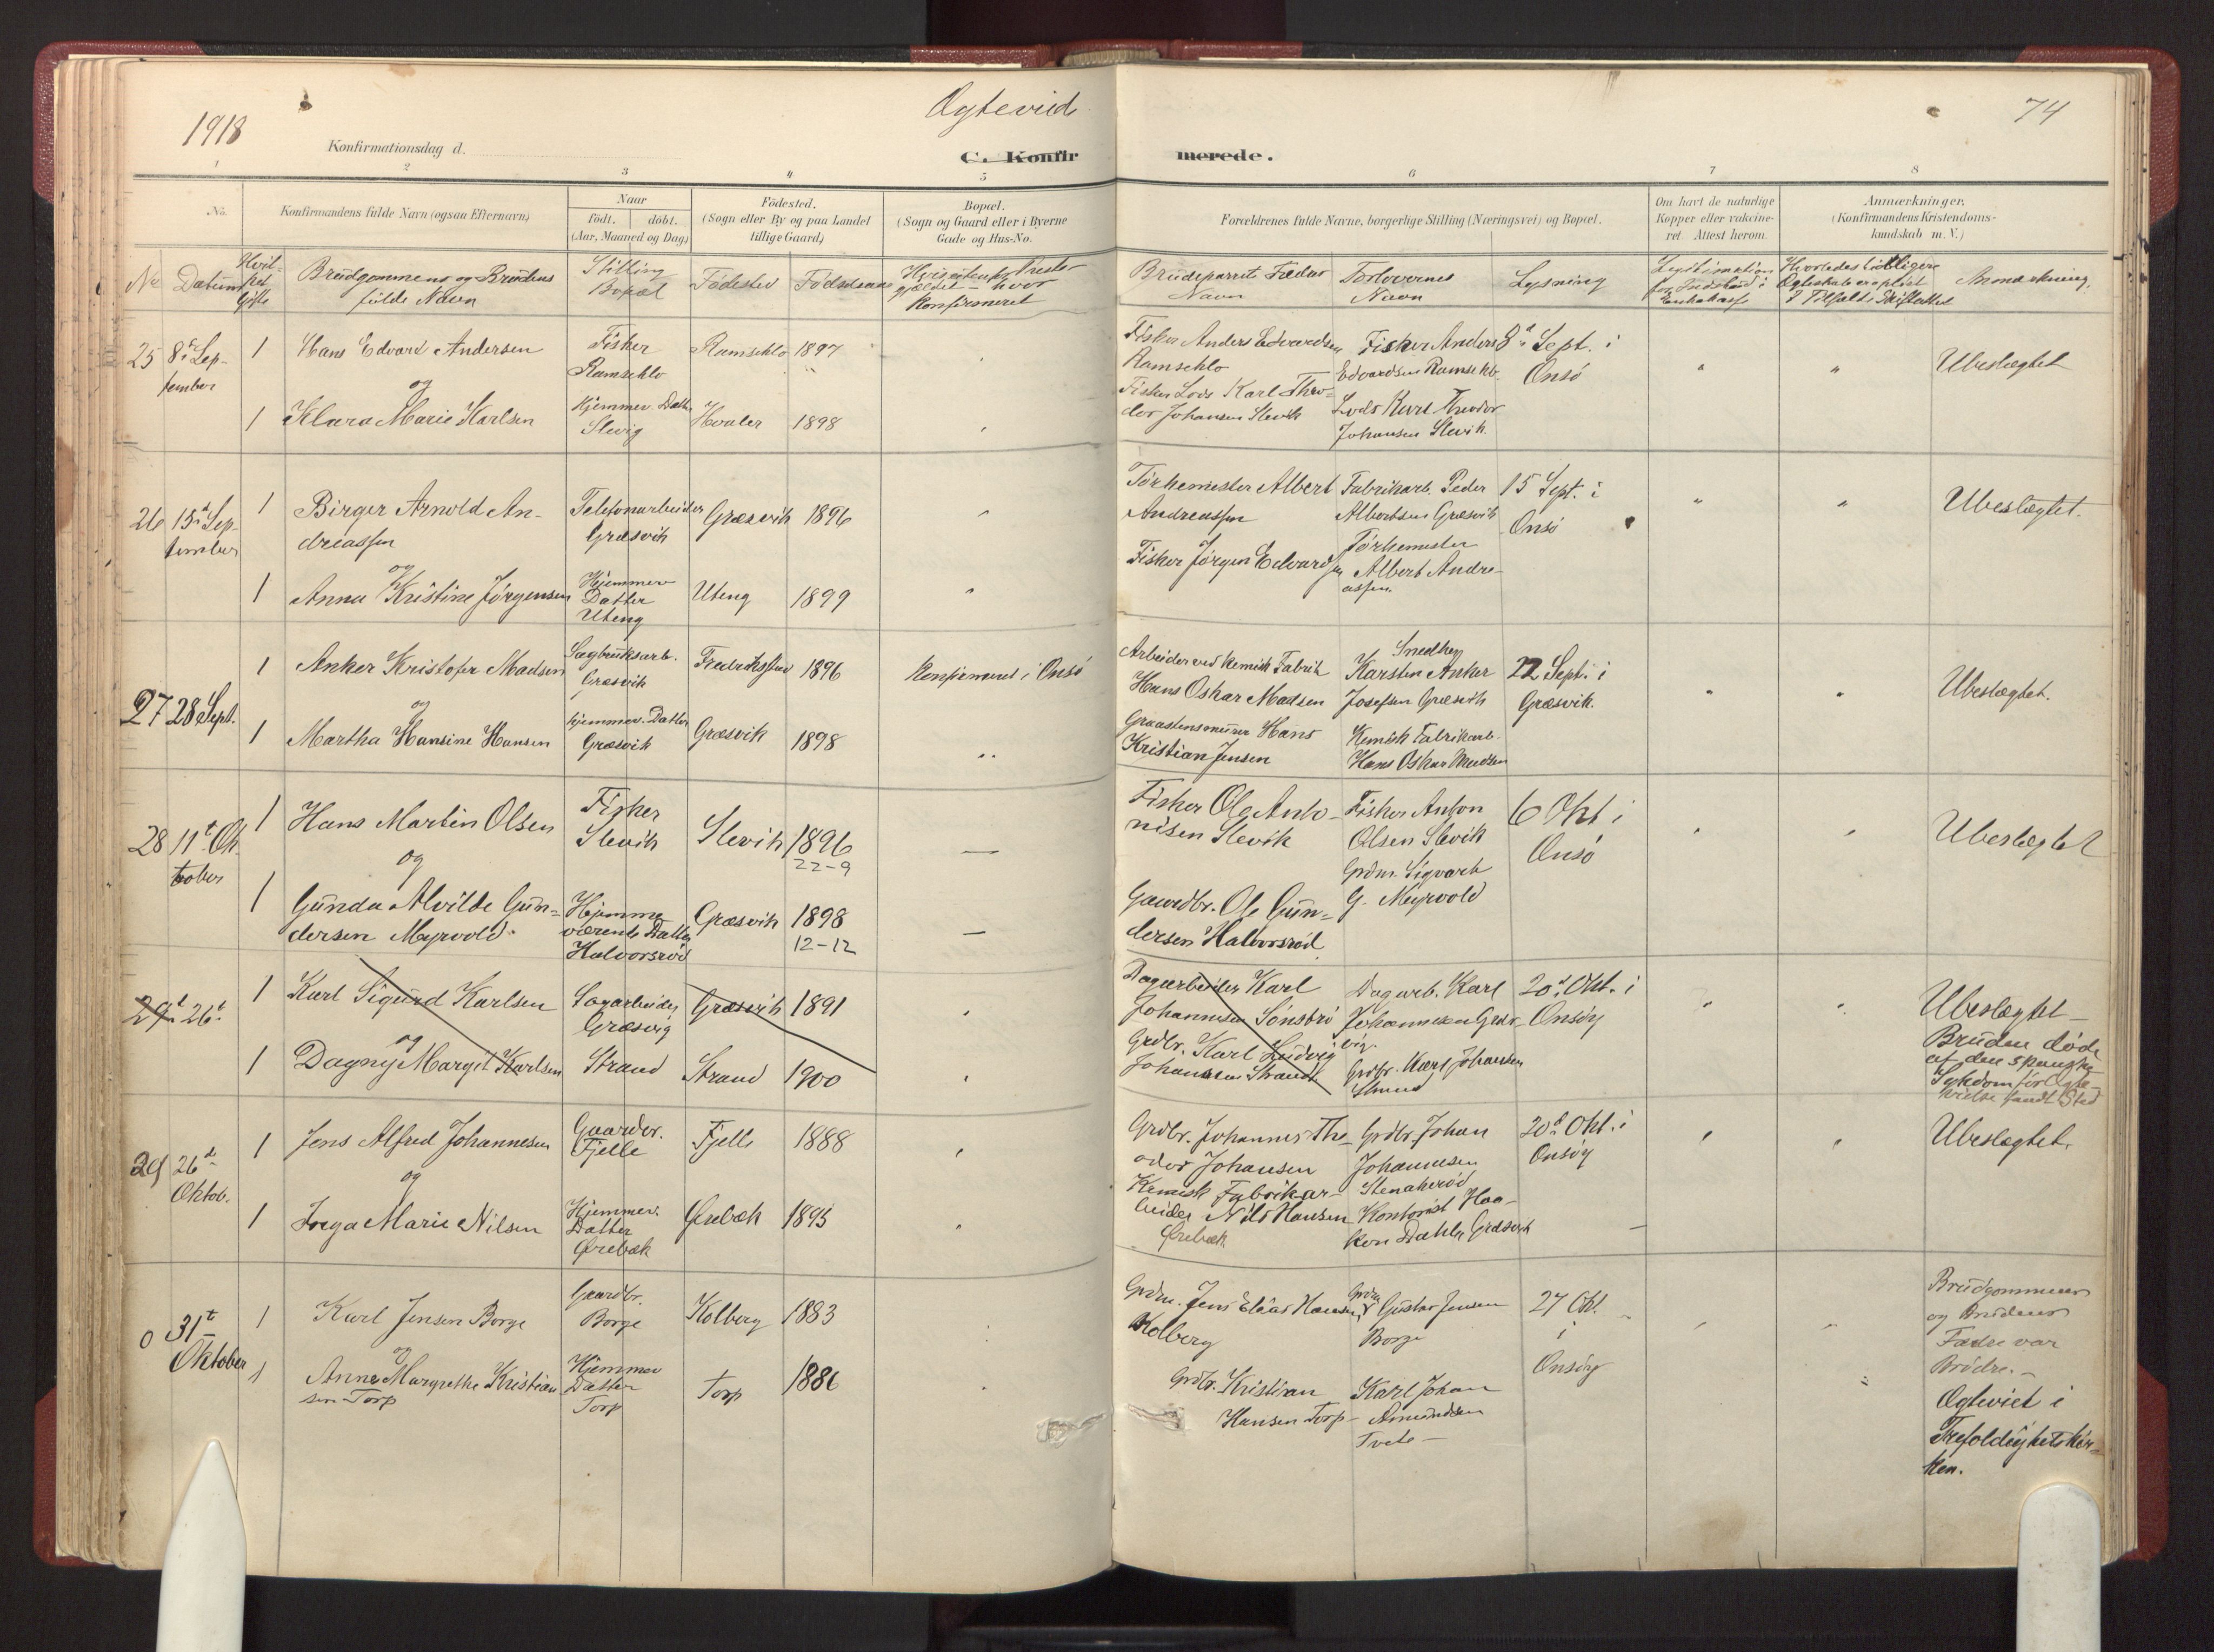 1918
Ægteviid
74
Konfirmationsdag d.
C. Konfirmerede.
1 2 3 4 5 6 7 8
No.
Konfirmandens fulde Navn (ogsaa Efternavn)
Naar
födt. döbt.
(Aar, Maaned og Dag)
Födested.
(Sogn eller By og paa Landet
tillige Gaard)
Bopæl.
(Sogn og Gaard eller i Byerne
Gade og Hus-No.
Forældrenes fulde Navne, borgerlige Stilling (Næringsvei) og Bopæl.
Om havt de naturlige
Kopper eller vakcine-
ret. Attest herom.
Anmærkninger.
(Konfirmandens Kristendoms-
kundskab m. V.)
Nr Datum
Hvil-
ket
Gifte
Brudgommens og Brudens
fulde Navn
Stilling
Bopæl
Födested
Födselsaar
hvor
Konfirmeret
Brudeparrets Fædres
Navn
Forlovernes
Navn
Lysning
Legitimation
for Indskud i
Enkekasse
Hvorledes tidligere
Ægteskab er oplöst
I Tilfælde Skifteattest
Anmærkning.
25 8de Sep-
tember
1 Hans Edvard Andersen
og
1 Klara Marie Karlsen
Fisker
Ramseklo
Hjemmev. Datter
Slevig
Ramseklo 1897
Hvaler 1898
Fisker Anders Edvardsen
Ramseklo
Fisker Lods Karl Theo-
dor Johansen Slevik
Fisker Anders
Edvardsen Ramseklo
Lods Karl Theodor
Johansen Slevik.
8d Sept. i
Onsö
Ubeslægtet
26 15d Sep-
tember
1 Birger Arnold An-
dreassen
og
1 Anna Kristine Jörgensen
Telefonarbeider
Græsvik
Hjemmev
Datter
Uteng
Græsvik 1896
Uteng 1899
Törkemester Albert
Andreassen
Fisker Jörgen Edvardsen
Fabrikarb. Peder
Albertsen Græsvik
Törkemester
Albert Andre-
assen.
15 Sept. i
Onsö
Ubeslægtet.
27 28 Sept.
1 Anker Kristofer Madsen
og
1 Martha Hansine Hansen
Sagbruksarb.
Græsvik
Hjemmev. Datter
Græsvik
Fredrikstad 1896
Græsvik 1898
Konfirmeret i Onsö
Arbeider ved Kemisk Fabrik
Hans Oskar Madsen
Graastensmurer Hans
Kristian Jensen
Snedker
Karsten Anker
Josefsen Græsvik
Kemisk Fabrikarb.
Hans Oskar Madsen
22 Sept. i
Græsvik.
Ubeslægtet.
28 11t Ok-
tober
1 Hans Martin Olsen
og
1 Gunda Alvilde Gun-
dersen Myrvold.
Fisker
Slevik
Hjemme
værende Datter
Halvorsröd
Slevik 1896
22-9
Græsvik 1898
12-12
Fisker Ole Anto-
nisen Slevik
Gaardbr. Ole Gun-
dersen Halvorsröd
Fisker Anton
Olsen Slevik
Grdm. Sigvart
G. Myrvold
6 Okt i
Onsö
Ubeslægtet
29d 26t
1 Karl Sigurd Karlsen
og
1 Dagny Margit Karlsen
Sagarbeider
Græsvig
Strand
Græsvik 1891
Strand 1900
Dagarbeider Karl
Johannesen Sönströ
Grdbr. Karl Ludvig
Johansen Strand
Dagarb. Karl
Johannesen Græs-
vig.
Grdbr. Karl Johansen
Strand
20d Okt. i
Onsöy
Ubeslægtet -
Bruden döde
af den spanske
Sykdom för Ægte-
vielse fandt Sted
29 26d
Oktob.
1 Jens Alfred Johannesen
og
1 Inga Marie Nilsen
Gaardbr.
Fjelle
Hjemmev.
Datter
Örebæk
Fjelle 1888
Örebæk 1895
Grdbr. Johannes The-
odor Johansen
Kemisk Fabrikar-
beider Nils Hansen
Örebæk.
Grdbr. Johan
Johannesen
Stenakeröd
Kontorist Haa-
kon Dahle Græsvik
20d Okt. i
Onsöy
Ubeslægtet.
0 31t
Oktober
1 Karl Jensen Borge
og
1 Anna Margrethe Kristian
sen Torp
Gaardbr.
Borge
Hjemmev
Datter
Torp
Kolberg 1883
Torp 1886
Grdm. Jens Elias Hansen
Kolberg
Grdbr. Kristian
Hansen Torp -
Grdm Gustav Jensen
Borge
Karl Johan
Amundsen
Tvete -
27 Okt.
i
Onsöy
Brudgommens
og Brudens
Fædre var
Brödre. -
Ægteviet i
Trefoldighetskir-
ken.